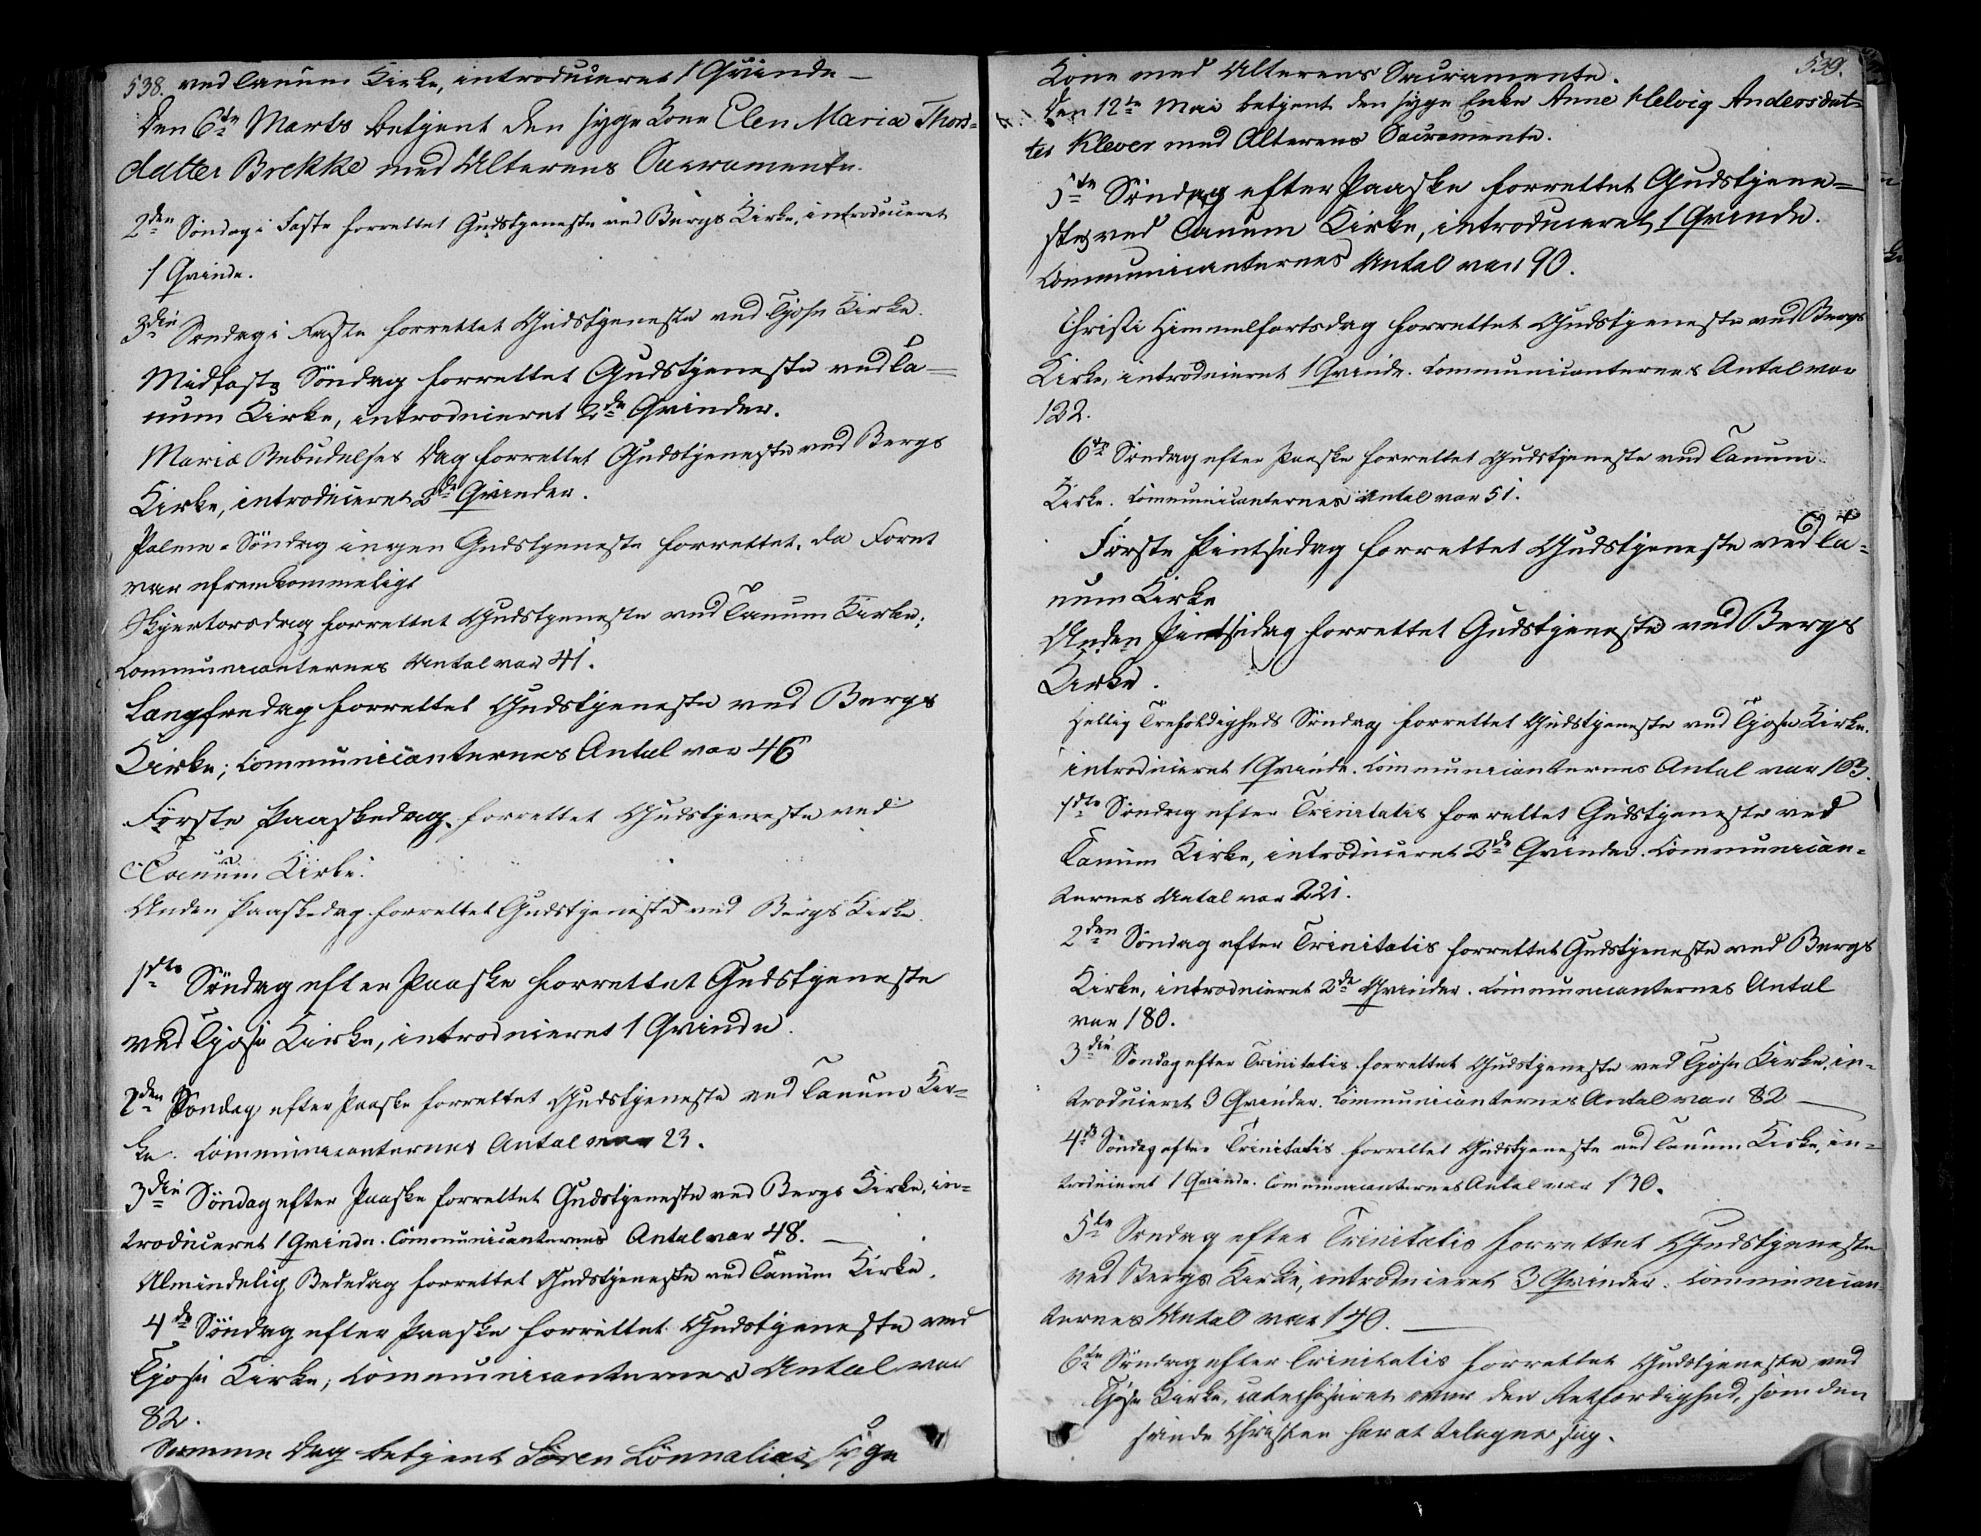 538. ved Tanum Kirke, introduceret 1 Qvinde —
Den 6te Marts betjent den syge Kone Elen Maria Thors-
datter Brekke med Alterens Sacramente.
2den Søndag i Faste forrettet Gudstjeneste ved Bergs Kirke, introduceret
1 Qvinde.
3die Søndag i Faste forrettet Gudstjeneste ved Tjose Kirke.
Midfaste Søndag forrettet Gudstjeneste ved Ta-
num Kirke, introduceret 2de Qvinder.
Mariæ Bebudelses Dag forrettet Gudstjeneste ved Bergs
Kirke, introduceret 2de Qvinder.
Palme-Søndag ingen Gudstjeneste forrettet, da Føret
var ufremkommeligt
Skjertorsdag forrettet Gudstjeneste ved Tanum Kirke;
Communicanternes Antal var 41.
Langfredag forrettet Gudstjeneste ved Bergs
Kirke; Communicanternes Antal var 46
Første Paaskedag forrettet Gudstjeneste ved
Tanum Kirke.
Anden Paaskedag forrettet Gudstjeneste ved Bergs Kirke.
1ste Søndag efter Paaske forrettet Gudstjeneste
ved Tjose Kirke, introduceret 1 Qvinde.
2den Søndag efter Paaske forrettet Gudstjeneste ved Tanum Kir-
ke. Communicanternes Antal var 23.
3die Søndag efter Paaske forrettet Gudstjeneste ved Bergs Kirke, in-
troduceret 1 Qvinde. Communicanternes Antal var 48. —
Almindelig Bededag forrettet Gudstjeneste ved Tanum Kirke.
4de Søndag efter Paaske forrettet Gudstjeneste ved
Tjose Kirke; Communicanternes Antal var
82.
Samme Dag betjent Søren Lønnalias syge
539.
Kone med Alterens Sacramente.
Den 12te Mai betjent den syge Enke Anne Helvig Andersdat-
ter Klever med Alterens Sacramente.
5te Søndag efter Paaske forrettet Gudstjene-
ste ved Tanum Kirke, introduceret 1 Qvinde.
Communicanternes Antal var 90.
Christi Himmelfartsdag forrettet Gudstjeneste ved Bergs
Kirke, introduceret 1 Qvinde. Communicanternes Antal var
122.
6te Søndag efter Paaske forrettet Gudstjeneste ved Tanum
Kirke. Communicanternes Antal var 51.
Første Pintsedag forrettet Gudstjeneste ved Ta-
num Kirke
Anden Pintsedag forrettet Gudstjeneste ved Bergs
Kirke.
Hellig Trefoldigheds Søndag forrettet Gudstjeneste ved Tjose Kirke.
introduceret 1 Qvinde. Communicanternes Antal var 103.
1ste Søndag efter Trinitatis forrettet Gudstjeneste ved
Tanum Kirke, introduceret 2de Qvinder. Communican-
ternes Antal var 221.
2den Søndag efter Trinitatis forrettet Gudstjeneste ved Bergs
Kirke, introduceret 2de Qvinder. Communicanternes Antal
var 180.
3die Søndag efter Trinitatis forrettet Gudstjeneste ved Tjose Kirke, in-
troduceret 3 Qvinder. Communicanternes Antal var 82 —
4de Søndag efter Trinitatis forrettet Gudstjeneste ved Tanum Kirke, in-
troduceret 1 Qvinde. Communicanternes Antal var 130.
5te Søndag efter Trinitatis forrettet Gudstjeneste
ved Bergs Kirke, introduceret 3 Qvinder. Communican
ternes Antal var 140. —
6te Søndag efter Trinitatis forrettet Gudstjeneste ved
Tjose Kirke, catechiseret over den Retfærdighed, som den
sande Christen har at tilegne sig.